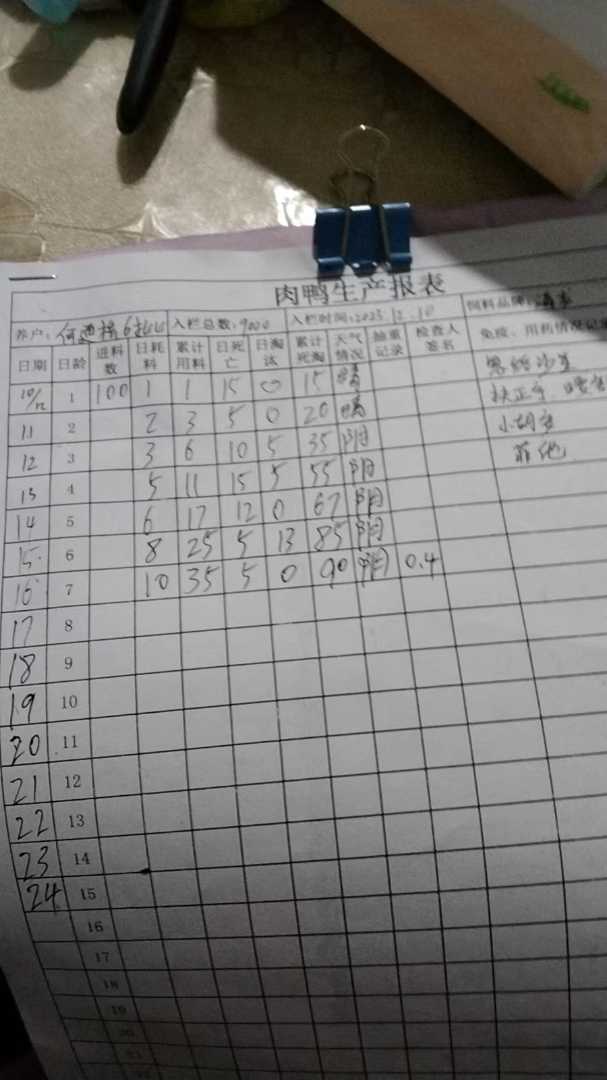 肉鸭生产报表
养户: 入栏总数:9000 入栏时间:2025.12.10 饲料品牌:
日期 日龄 进料数 日耗料 累计用料 日死亡 日淘汰 累计死淘 天气情况 抽重记录 检查人签名 免疫、用药情况记录
10/12 1 100 1 1 15 0 15 晴
11 2 2 3 5 0 20 晴
12 3 3 6 10 5 35 阴
13 4 5 11 15 5 55 阴
14 5 6 17 12 0 67 阴
15 6 8 25 5 13 85 阴
16 7 10 35 5 0 90 阴 0.4
17 8
18 9
19 10
20 11
21 12
22 13
23 14
24 15
16
17
18
19
20
21